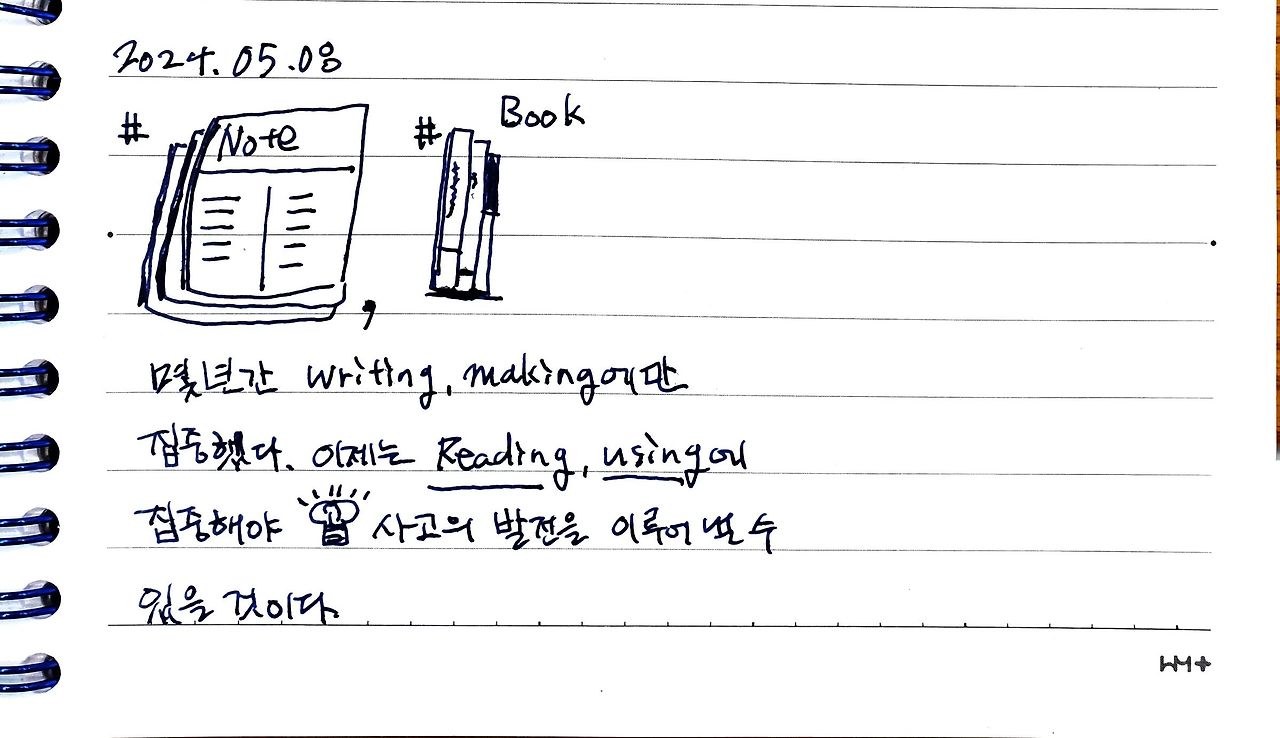 2024.05.08
# Note , # Book
몇년간 writing, making에만
집중했다. 이제는 Reading, using에
집중해야 사고의 발전을 이루어 낼 수
있을 것이다.
WM+